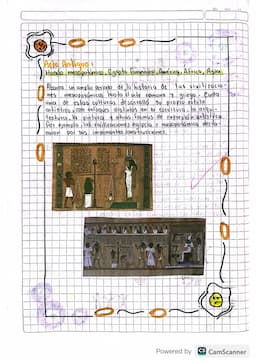 Arte Antiguo:
Mundo mesopotámico, Egipto Romano, America, Africa, Asia.
Abarca un amplio periodo de la historia de las civilizacio-
nes mesopotámicas hasta el arte romano y griego. Cada
una de estas culturas desarrolló su propio estilo
artístico, con enfoques distintos en la escultura, la arqui-
tectura, la pintura y otras formas de expresión artística.
Por ejemplo, las civilizaciones egipcia y mesopotámica desta-
caron por sus imponentes construcciones.
Powered by CS CamScanner